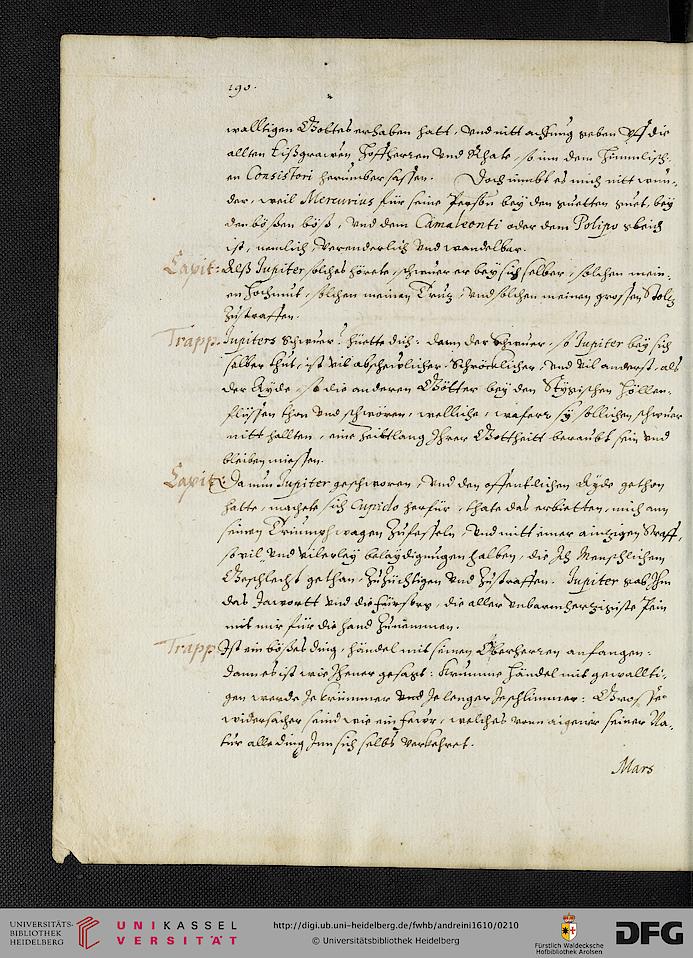 190.
walltigen Gottes erhaben hatt, vnd nitt achtung geben vff die
allten Eißgrawen Hoffherren vnd Räthe, so inn dem Himmlisch-
en Consistori herumber sassen. Doch nimbt es mich nitt wun-
der, weil Mercurius für seine Person bey den guetten guet, bey
den bößen böß, vnd dem Camaleonti oder dem Polipo gleich
ist, nemlich verenderlich vnd wandelbar.
Capit: Alß Jupiter solches hörete, schwuer er bey sich selber, solchen mein-
en Hochmut, solchen meinen Trutz, vnd solchen meinen grossen Stoltz
zustraffen.
Trapp. Jupiters Schwuer? hüette dich: dann der Schwuer, so Jupiter bey sich
selber thut, ist vil abscheulicher, Schröcklicher, vnd vil anderst, als
der Ayde, so die anderen Götter bey den Stygischen Höllen-
flüssen thon vnd schwören, welliche, wafern sy sollichen schwuer
nitt hallten, eine Zeittlang Ihrer Gottheitt beraubt sein vnd
bleiben miessen.
Capit: Da nun Jupiter geschworen, vnd den offentlichen Ayde gethon
hatte, machete sich Cupido herfür, thate das erbietten, mich ann
seinen Triumphwagen zufesseln, vnd mitt einer ainzigen Straff,
so vil vnd vilerley belaydigungen halben, die Ich Menschlichem
Geschlecht gethan, zuzüchtigen vnd zustraffen. Jupiter gab Ihm
das Jawortt vnd die fürsorg, die aller vnbarmhertzigiste Pein
mit mir für die hand zunämmen.
Trapp Ist ein bößes ding, händel mit seinen Oberherren anfangen:
dann es ist wie Jhener gesagt: Krumme händel mit gewallti-
gen werde Je krümmer vnd Je lenger Je schlimmer: Grosse
widersacher seind wie ein fewr, welches vonn aigener seiner Na-
tur alle ding Inn sich selbs verkehret.
Mars
UNIVERSITÄTS-
BIBLIOTHEK
HEIDELBERG
UNIKASSEL
VERSITÄT
http://digi.ub.uni-heidelberg.de/fwhb/andreini1610/0210
© Universitätsbibliothek Heidelberg
Fürstlich Waldecksche
Hofbibliothek Arolsen
DFG